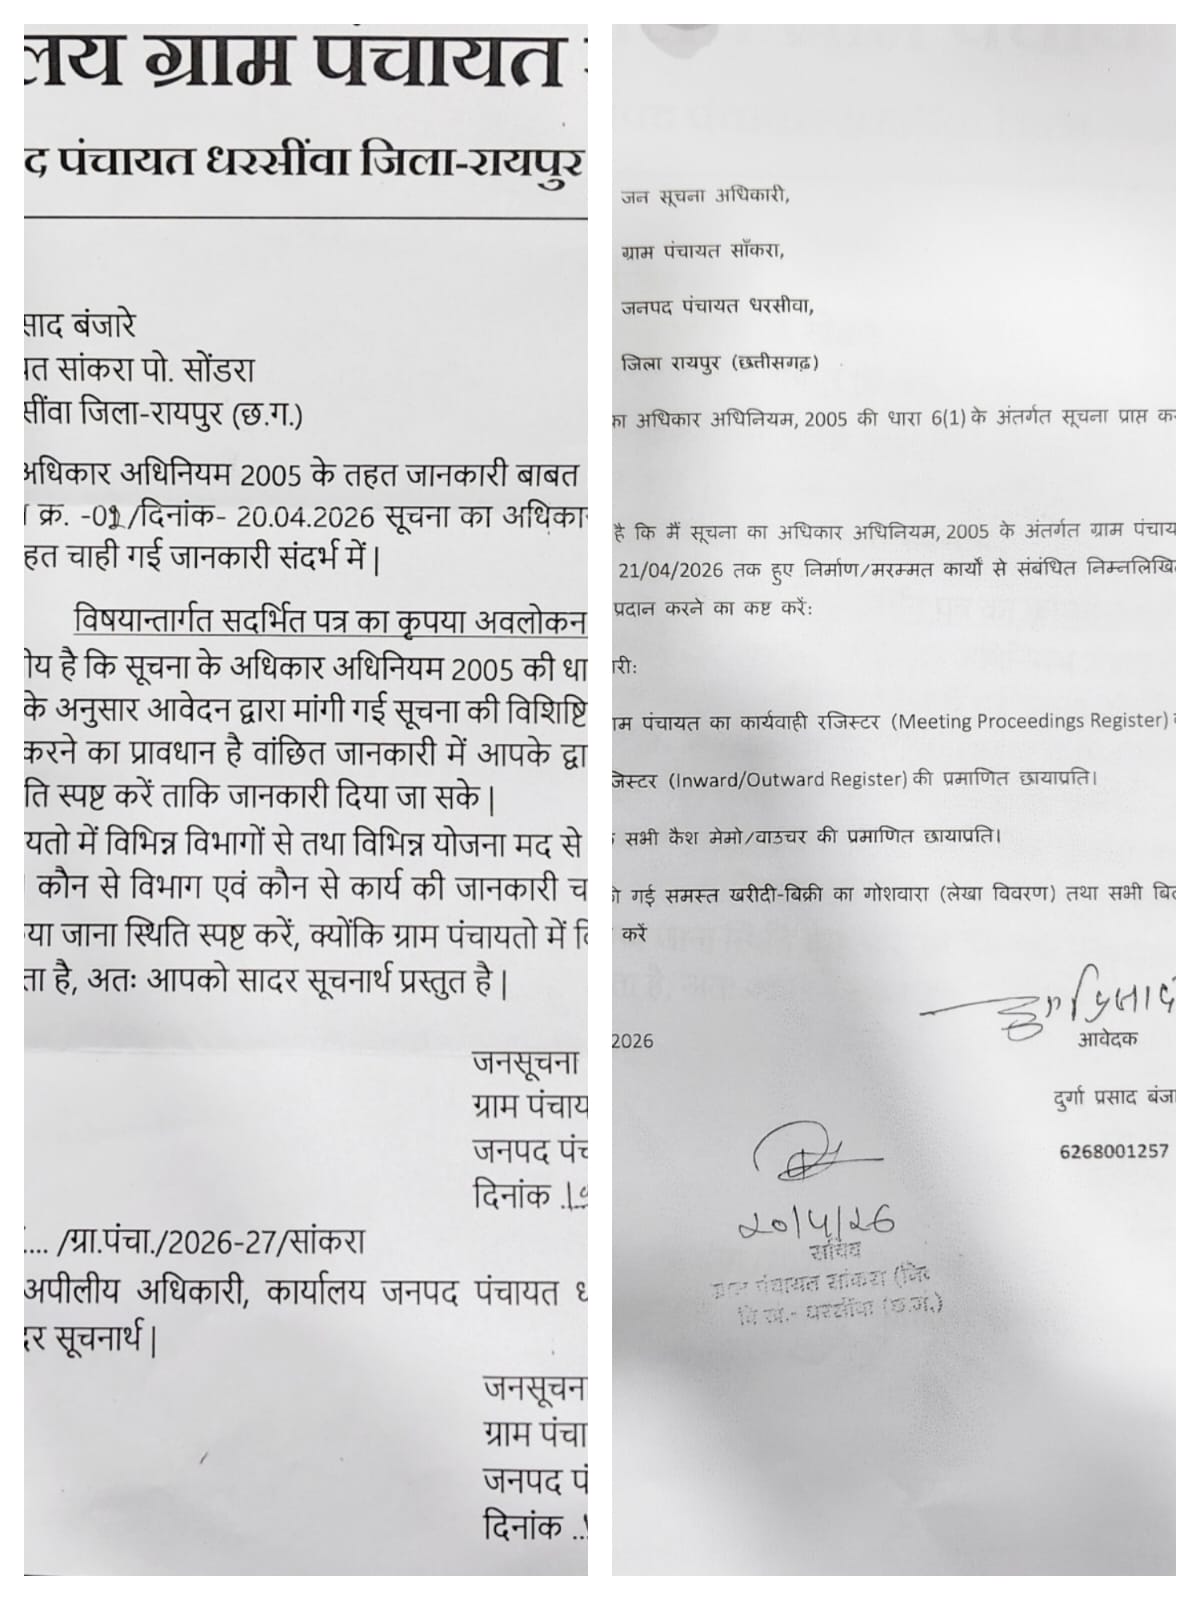 लय ग्राम पंचायत
द पंचायत धरसींवा जिला-रायपुर
साद बंजारे
त सांकरा पो. सोंडरा
सींवा जिला-रायपुर (छ.ग.)
अधिकार अधिनियम 2005 के तहत जानकारी बाबत
क्र. -01/दिनांक- 20.04.2026 सूचना का अधिका
हत चाही गई जानकारी संदर्भ में|
विषयान्तार्गत सदर्भित पत्र का कृपया अवलोकन
ीय है कि सूचना के अधिकार अधिनियम 2005 की धा
के अनुसार आवेदन द्वारा मांगी गई सूचना की विशिष्टि
करने का प्रावधान है वांछित जानकारी में आपके द्वा
ति स्पष्ट करें ताकि जानकारी दिया जा सके|
यतो में विभिन्न विभागों से तथा विभिन्न योजना मद से
कौन से विभाग एवं कौन से कार्य की जानकारी च
या जाना स्थिति स्पष्ट करें, क्योंकि ग्राम पंचायतो में वि
ता है, अतः आपको सादर सूचनार्थ प्रस्तुत है|
जनसूचना
ग्राम पंचाय
जनपद पंच
दिनांक
.... /ग्रा.पंचा./2026-27/सांकरा
अपीलीय अधिकारी, कार्यालय जनपद पंचायत ध
र सूचनार्थ|
जनसूचन
ग्राम पंचा
जनपद पं
दिनांक ..
जन सूचना अधिकारी,
ग्राम पंचायत साँकरा,
जनपद पंचायत धरसीवा,
जिला रायपुर (छत्तीसगढ़)
का अधिकार अधिनियम, 2005 की धारा 6(1) के अंतर्गत सूचना प्राप्त कर
है कि मैं सूचना का अधिकार अधिनियम, 2005 के अंतर्गत ग्राम पंचाय
21/04/2026 तक हुए निर्माण/मरम्मत कार्यों से संबंधित निम्नलिखि
प्रदान करने का कष्ट करें:
री:
ाम पंचायत का कार्यवाही रजिस्टर (Meeting Proceedings Register)
जिस्टर (Inward/Outward Register) की प्रमाणित छायाप्रति।
सभी कैश मेमो/वाउचर की प्रमाणित छायाप्रति।
ी गई समस्त खरीदी-बिक्री का गोशवारा (लेखा विवरण) तथा सभी बिल
करें
2026
आवेदक
दुर्गा प्रसाद बंजा
6268001257
20/4/26
सचिव
ग्राम पंचायत सांकरा (जि
वि.खं.- धरसींवा (छ.ग.)